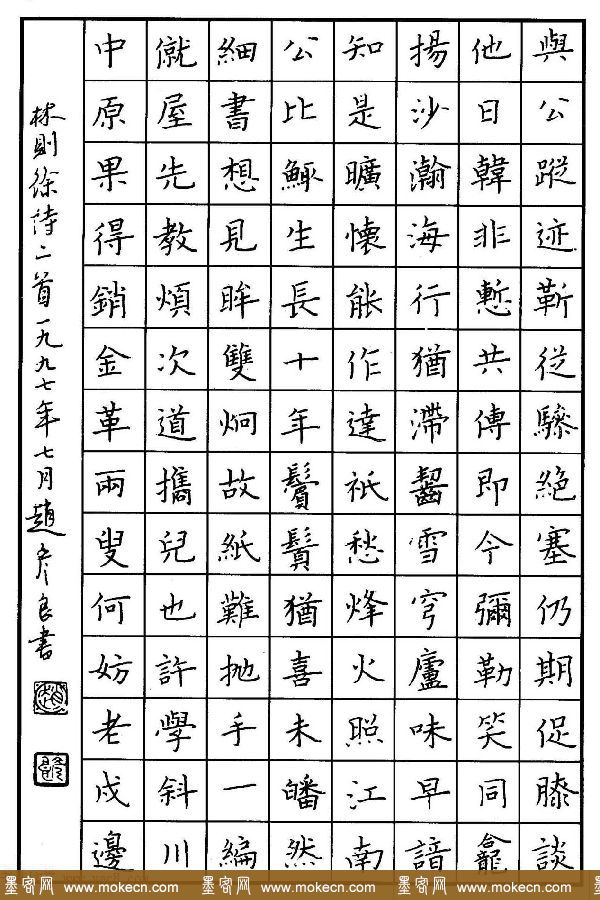 與公蹤迹靳從驂絕塞仍期促膝談
他日韓非慙共傳即今彌勒笑同龕
揚沙瀚海行猶滯齧雪穹廬味早諳
知是曠懷能作達祇愁烽火照江南
公比鯫生長十年鬢鬚猶喜未皤然
細書想見眸雙炯故紙難抛手一編
僦屋先教煩次道攜兒也許學斜川
中原果得銷金革兩叟何妨老戍邊
林則徐詩二首一九九七年七月趙彥良書
墨客网 www.mokecn.com 墨客网 www.mokecn.com 墨客网 www.mokecn.com